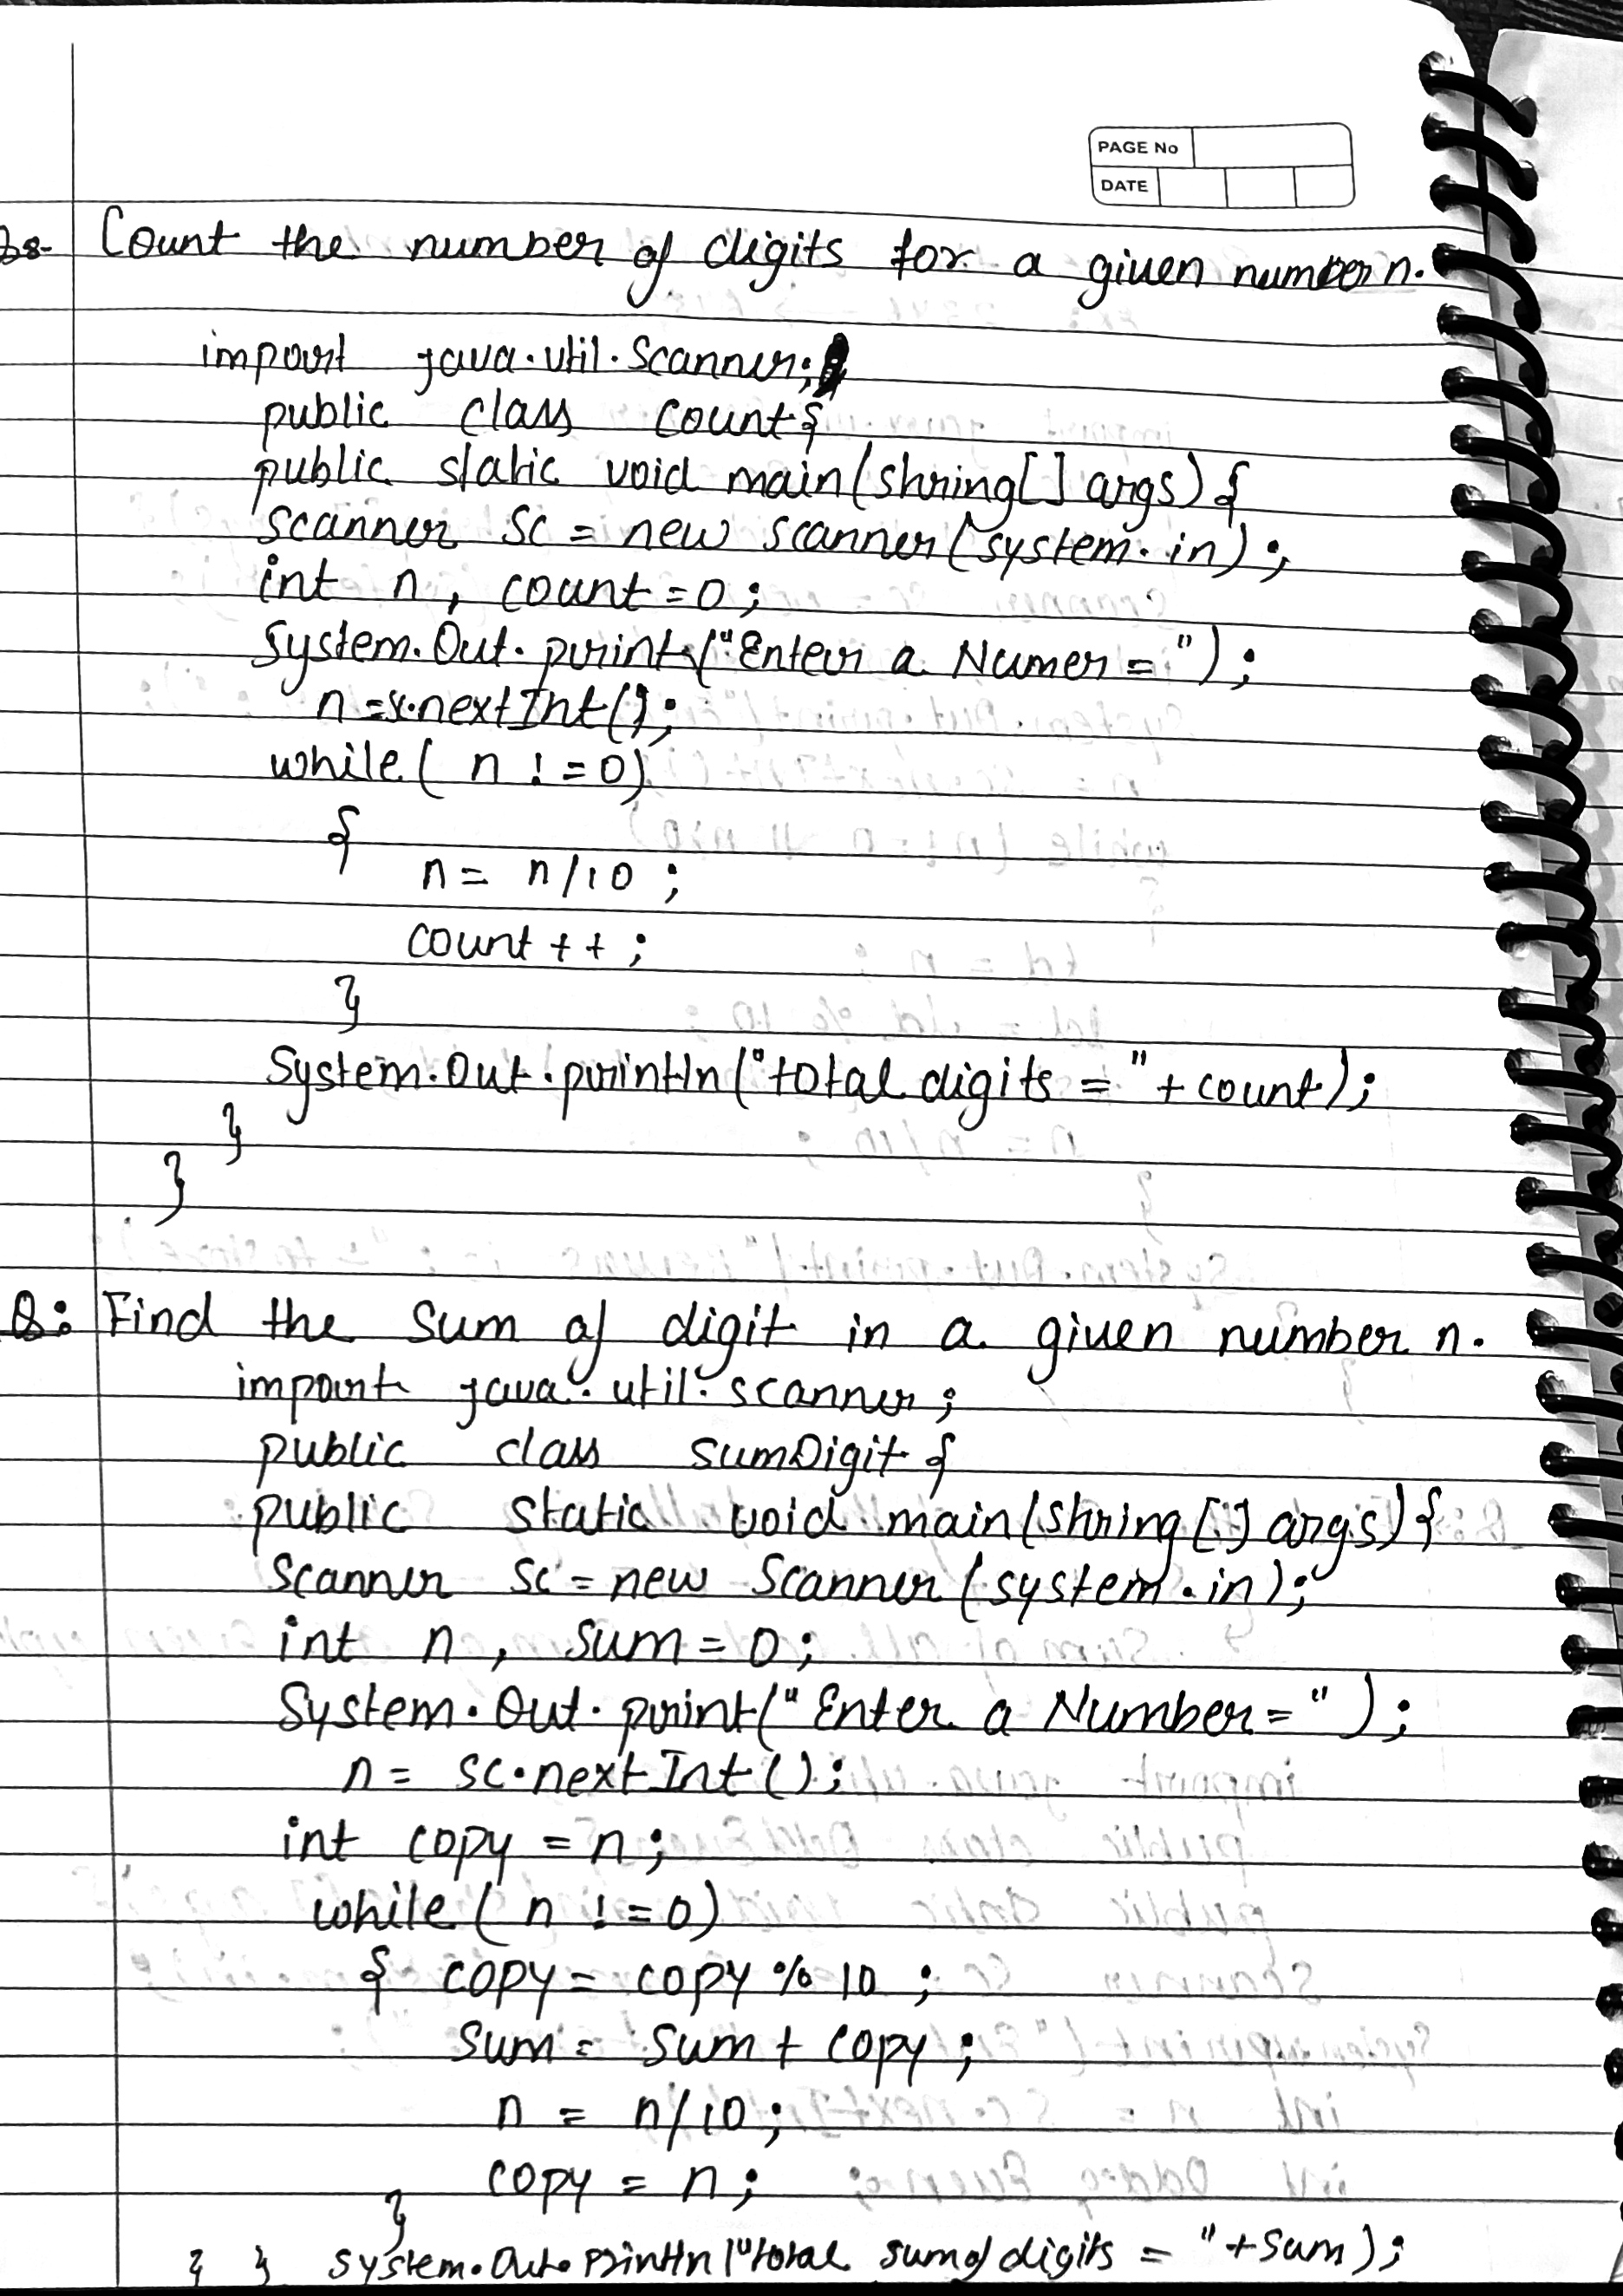 PAGE No
DATE
Q:- Count the number of digits for a given number n.
import java.util.Scanner;
public class count{
public static void main(shring[] args){
scanner sc = new scanner(system.in);
int n, count=0;
System.Out.print("Enter a Numer = ");
n=s.nextInt();
while( n !=0)
{
n= n/10 ;
count++;
}
System.Out.println("total digits = "+count);
}
}
Q: Find the sum of digit in a given number n.
import java.util.scanner;
public class sumDigit{
public static void main(shring[] args){
Scanner sc=new Scanner(system.in);
int n, sum=0;
System.Out.print("Enter a Number=" );
n= sc.nextInt();
int copy = n;
while( n !=0)
{ copy= copy%10 ;
sum= sum+ copy;
n = n/10;
copy = n;
}
} } system.Out.println("total sum of digits = "+sum);